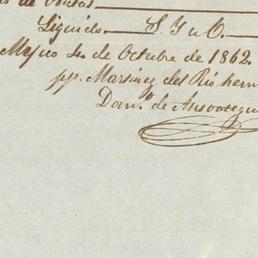 de Ventas
Liquido S. Y u O.
Mejico 4 de Octubre de 1862.
pp. Martinez del Rio herm
Dom.o de Ansoategui